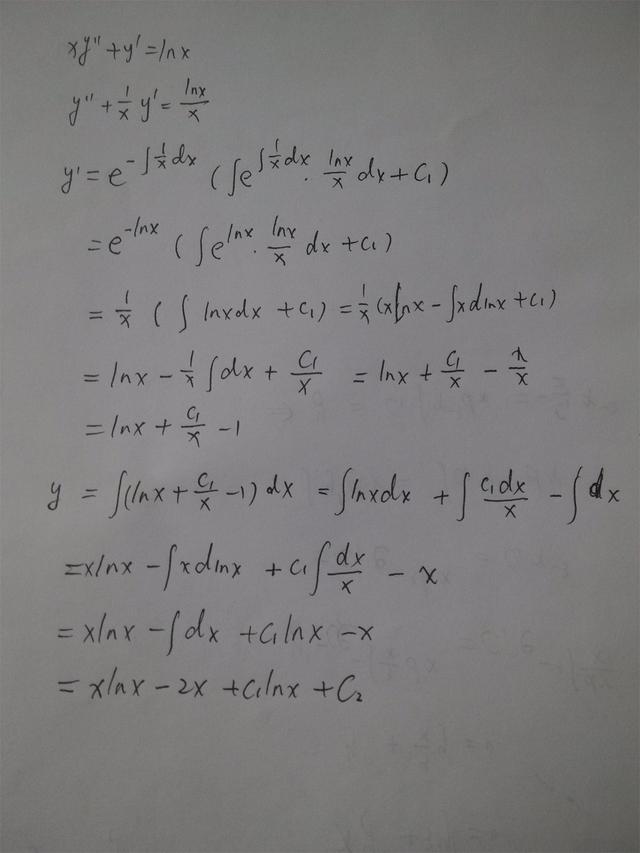 xy''+y'=lnx
y''+1/x y'=lnx/x
y'=e^(-∫1/x dx) (∫e^(∫1/x dx)·lnx/x dx+C₁)
=e^(-lnx) (∫e^(lnx)·lnx/x dx+C₁)
=1/x (∫lnxdx+C₁)=1/x (xlnx-∫xdlnx+C₁)
=lnx-1/x∫dx+C₁/x =lnx+C₁/x-x/x
=lnx+C₁/x-1
y=∫(lnx+C₁/x-1)dx=∫lnxdx+∫C₁dx/x-∫dx
=xlnx-∫xdlnx+C₁∫dx/x-x
=xlnx-∫dx+C₁lnx-x
=xlnx-2x+C₁lnx+C₂